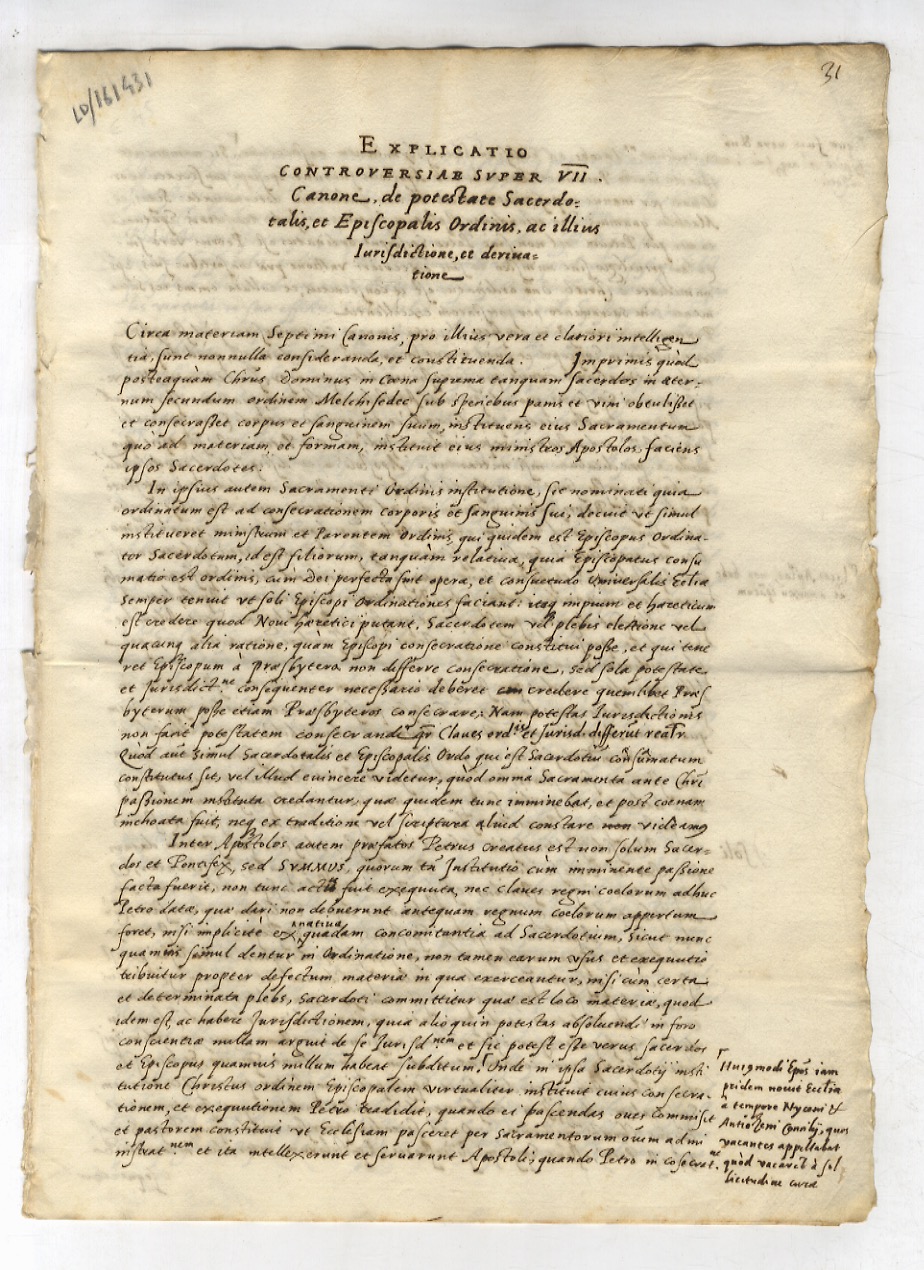 LO/161431
31
EXPLICATIO
CONTROVERSIAE SVPER VII.
Canone, de potestate Sacerdo=
talis, et Episcopalis Ordinis, ac illius
Iurisdictione, et deriua=
tione
Circa materiam Septimi Canonis, pro illius vera et clariori intelligen
tia, sunt nonnulla consideranda, et constituenda. Imprimis quòd
posteaquàm Chrũs Dominus in Coena suprema tanquam sacerdos in æter-
num secundum ordinem Melchisedec sub speciebus panis et vini obtulisset
et consecrasset corpus et sanguinem suum, instituens eius Sacramentum
quò ad materiam, et formam, instituit eius ministros Apostolos, faciens
ipsos Sacerdotes.
In ipsius autem Sacramenti Ordinis institutione, sic nominati quia
ordinatum est ad consecrationem corporis et sanguinis sui, decuit vt simul
institueret ministrum et Parentem Ordinis, qui quidem est Episcopus Ordina-
tor Sacerdotum, id est filiorum, tanquàm relatiua, quia Episcopatus consu
matio est ordinis, cùm Dei perfecta sint opera, et consuetudo Vniuersalis Ecliæ
semper tenuit vt soli Episcopi Ordinationes faciant: itaq impium et hæreticum
est credere quod Noui hæretici putant, Sacerdotem vel plebis electione vel
quacunq alia ratione, quàm Episcopi consecratione constitui posse, et qui tene
ret Episcopum à præsbytero non differre consecratione, sed sola potestate
et Iurisdict.ne consequenter necessario deberet credere quemlibet Præs
byterum posse etiam Præsbyteros consecrare; Nam potestas Iurisdictionis
non facit potestatem consecrandi, qr Claues ord.is et Iurisd. differũt realr.
Quòd aut Simul Sacerdotalis et Episcopalis Ordo qui est Sacerdotiũ consũmatum
constitutus sit, vel illud euincere videtur, quòd omnia Sacramenta ante Chrĩ
passionem instituta credantur, quæ quidem tunc imminebat, et post coenam
inchoata fuit, neq ex traditione vel scriptura aliud constare videamus
Inter Apostolos autem præfatos Petrus creatus est non solum Sacer-
dos et Pontifex, sed SVMMVS, quorum tñ Institutio cùm imminente passione
facta fuerit, non tunc fuit exequuta, nec claues regni coelorum adhuc
Petro datæ, quæ dari non debuerunt antequam regnum coelorum appertum
foret, nisi implicite ex natiua quadam concomitantia ad Sacerdotium, sicut nunc
quamuis simul dentur in Ordinatione, non tamen earum vsus et exequutio
tribuitur propter defectum materiæ in qua exerceantur, nisi cùm certa
et determinata plebs, Sacerdoti committitur quæ est loco materiæ, quod
idem est, ac habere Iurisdictionem, quia alioquin potestas absoluendi in foro
conscientiæ nullam arguit de se Iurisd.nem et sic potest esse verus sacerdos
et Episcopus quamuis nullum habeat subditum. Vnde in ipsa Sacerdotij insti
tutione Christus ordinem Episcopalem virtualiter instituit cuius consecra-
tionem, et exequutionem Petro tradidit, quando ei pascendas oues commisit
et pastorem constituit vt Ecclesiam pasceret per Sacramentorum ouium admi
nistrat.nem et ita intellexerunt et seruarunt Apostoli; quando Petro in cosecrat.ne
Huiusmodi Epũs iam
pridem nouit Ecclia
à tempore Nyceni &
Antiocheni Concilij, quos
vacantes appellabat
quòd vacarẽt à sol
licitudine curæ